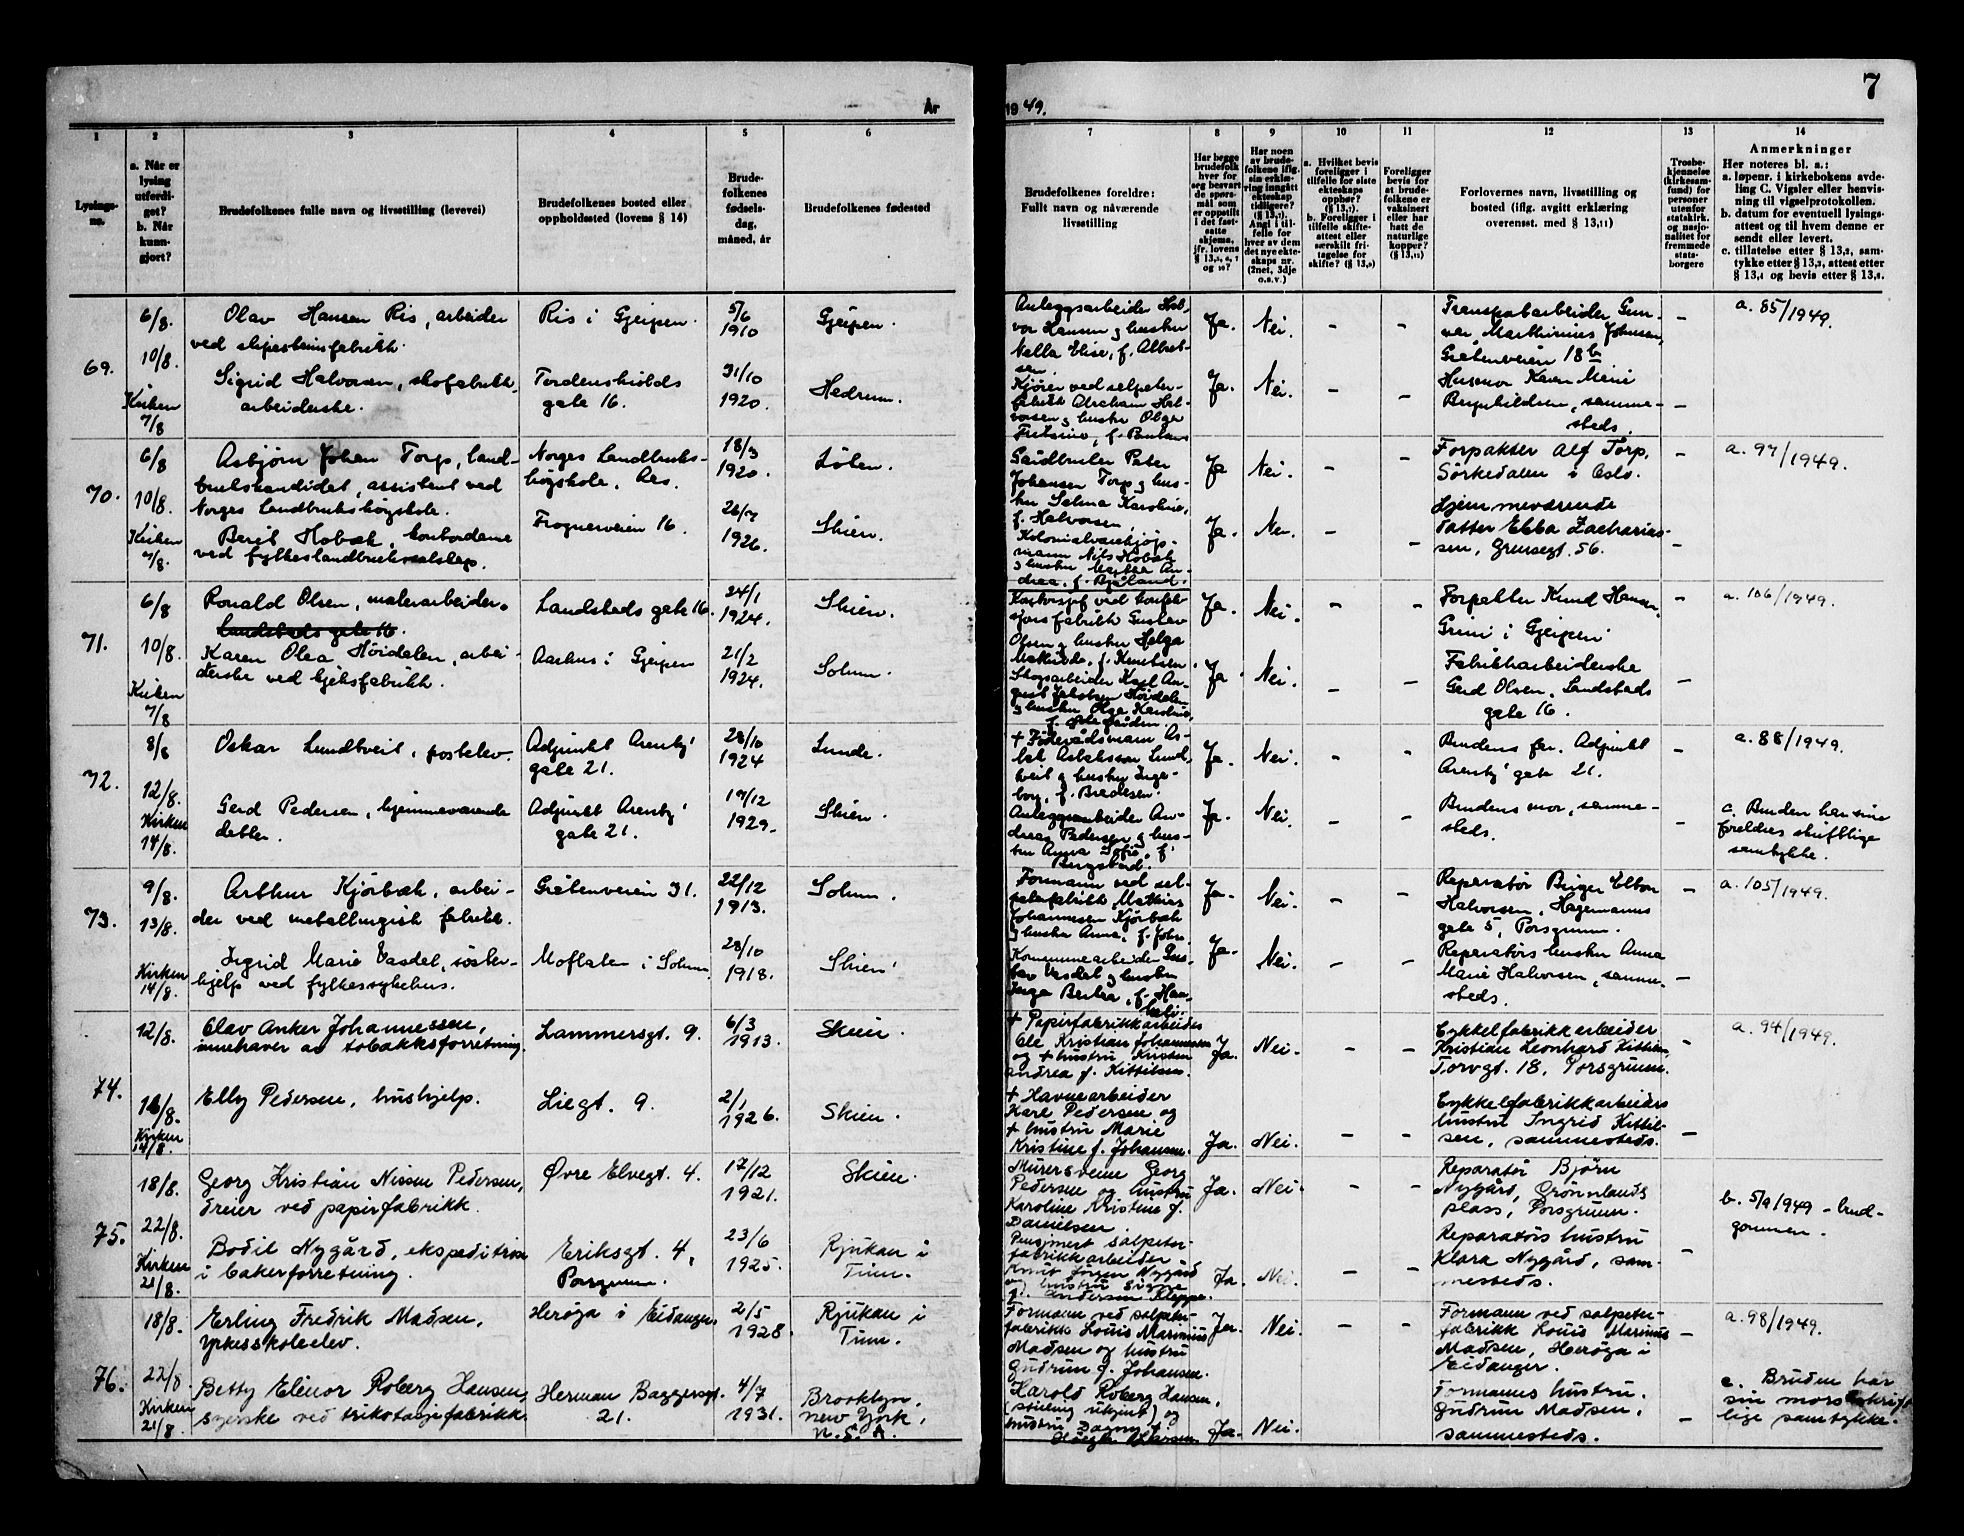 År
1949.
7
1
2
3
4
5
6
7
8
9
10
11
12
13
14
Lysings-
nr.
a. Når er
lysing
utferdi-
get?
b. Når
kunn-
gjort?
Brudefolkenes fulle navn og livsstilling (levevei)
Brudefolkenes bosted eller
oppholdssted (lovens § 14)
Brude-
folkenes
fødsels-
dag,
måned, år
Brudefolkenes fødested
Brudefolkenes foreldre:
Fullt navn og nåværende
livsstilling
Har begge
brudefolk
hver for
seg besvart
de spørs-
mål som
er oppstilt
i det fast-
satte
skjema,
jfr. lovens
Har noen
av brude-
folkene iflg.
sin erklæ-
ring inngått
ekteskap
tidligere?
Angi i til-
felle for
hver av dem
det nye ekte-
skaps nr.
(2net, 3dje
o.s.v.)
a. Hvilket bevis
foreligger i
tilfelle for siste
ekteskaps
opphør?
b. Foreligger i
tilfelle skifte-
attest eller
særskilt fri-
tagelse for
skifte?
Foreligger
bevis for
at brude-
folkene er
vaksinert
eller har
hatt de
naturlige
kopper?
Forlovernes navn, livsstilling og
bosted (iflg. avgitt erklæring
overensst. med § 13,11)
Trosbe-
kjennelse
(kirkesam-
fund) for
personer
utenfor
statskirk.
og nasjo-
nalitet for
fremmede
stats-
borgere
Anmerkninger
Her noteres bl. a.:
a. løpenr. i kirkebokens avde-
ling C. Vigsler eller henvis-
ning til vigselprotokollen.
b. datum for eventuell lysings-
attest og til hvem denne er
sendt eller levert.
c. tillatelse etter § 13,2, sam-
tykke etter § 13,3, attest etter
§ 13,4 og bevis etter § 13,8.
69.
6/8.
10/8.
Kirken
7/8
Olav Hansen Ris, arbeider
ved slipesteinsfabrikk.
Ris i Gjerpen.
5/6
1910
Gjerpen.
Anleggsarbeider Hal-
vor Hansen og hustru
Nella Elise, f. Albret-
sen.
Ja.
Nei.
-
-
Transportarbeider Gun-
nar Marthinius Johnsen,
Gråtenveien 18b
-
a. 85/1949.
Sigrid Halvorsen, skofabrikk-
arbeiderske.
Tordenskiolds
gate 16.
31/10
1920.
Hedrum.
Kjører ved salpeter-
fabrikk Abraham Hal-
vorsen og hustru Olga
Ja.
Nei.
-
-
Husmor Karen Marie
Brynhildsen, samme-
steds.
-
70.
6/8
10/8.
Kirken
7/8.
Asbjørn Johan Torp, land-
brukskandidat, assistent ved
Norges Landbrukshøgskole.
Norges Landbruks-
høgskole, Aas.
18/3
1920.
Løten.
Gårdbruker Peter
Johansen Torp og hus-
tru Selma Karoline,
f. Halvorsen
Ja
Nei.
-
-
Forpakter Alf Torp,
Sørkedalen i Oslo.
-
a. 97/1949.
Berit Hobæk, kontordame
ved fylkeslandbruksselskap.
Frognerveien 16.
26/7
1926.
Skien.
Kolonialvarekjøp-
mann Nils Hobæk
og hustru Martha An-
drea, f. Bjåland.
Ja.
Nei.
-
-
Hjemmeværende
datter Ebba Zacharias-
sen, Grensegt. 56.
-
71.
6/8
10/8.
Kirken
7/8
Ronald Olsen, malerarbeider.
Landstads gate 16.
Landstads gate 16.
24/1
1924.
Skien.
fabrikk Gustav
Olsen og hustru Helga
Mathilde, f. Knutsen.
Ja.
Nei.
-
-
Forpakter Knud Hansen,
Grini i Gjerpen.
-
a. 106/1949.
Karen Olea Høidalen, arbei-
derske ved kjeksfabrikk.
Aarhus i Gjerpen
21/2
1924.
Solum.
Skogsarbeider Karl Au-
gust Jakobsen Høidalen
og hustru Olga Karoline,
Ja.
Nei.
-
-
Fabrikkarbeiderske
Gerd Olsen, Landstads
gate 16.
-
72.
8/8
12/8.
Kirken
14/8.
Oskar Lundtveit, postelev.
Adjunkt Arentz'
gate 21.
28/10
1924
Lunde.
+ Føderådsmann As-
lak Aslaksson Lund-
tveit og hustru Inge-
borg, f. Bradesen.
Ja.
Nei.
-
-
Brudens far, Adjunkt
Arentz' gate 21.
-
a. 88/1949.
Gerd Pedersen, hjemmeværende
datter.
Adjunkt Arentz'
gate 21.
17/12
1929.
Skien.
Anleggsarbeider An-
dreas Pedersen og hus-
tru Anna Sofie, f.
Bergstad.
Ja.
Nei.
-
-
Brudens mor, samme-
steds.
-
c. Bruden har sine
foreldres skriftlige
samtykke.
73.
9/8.
13/8.
Kirken
14/8.
Arthur Kjørbæk, arbei-
der ved metallurgisk fabrikk.
Gråtenveien 31.
22/12
1913.
Solum.
Formann ved sal-
peterfabrikk Mathias
Johannesen Kjørbæk
og hustru Anna, f. John.
Ja.
Nei.
-
-
Reparatør Birger Elton
Halvorsen, Hagemanns
gate 5, Porsgrunn.
-
a. 105/1949.
Ingrid Marie Vasdal, søster-
hjelp ved fylkessykehus.
Moflaten i Solum
28/10
1918.
Skien.
Kommunearbeider Gus-
tav Vasdal og hustru
Inga Bertea, f. Han-
Ja.
Nei.
-
-
Reparatørs hustru Anna
Marie Halvorsen, samme-
steds.
-
74.
12/8.
16/8.
Kirken
14/8.
Olav Anker Johannessen,
innehaver av tobakksforretning.
Lammersgt. 9.
6/3
1913.
Skien.
+ Papirfabrikkarbeider
Ole Kristian Johannessen
og + hustru Kirsten
Andrea f. Kittilsen.
Ja.
Nei.
-
-
Cykkelfabrikkarbeider
Kristian Leonhard Kittilsen,
Torvgt. 18, Porsgrunn.
-
a. 94/1949.
Elly Pedersen, hushjelp.
Liegt. 9.
2/1
1926.
Skien.
+ Havnearbeider
Karl Pedersen og
+ hustru Marie
Kristine f. Johansen.
Ja.
Nei.
-
-
Cykkelfabrikkarbeiders
hustru Ingrid Kittil-
sen, sammesteds.
-
75.
18/8.
22/8.
Kirken
21/8.
Georg Kristian Nissen Pedersen,
dreier ved papirfabrikk.
Øvre Elvegt. 4.
17/12
1921.
Skien.
Murersvenn Georg
Pedersen og hustru
Karoline Kristine f.
Danielsen.
Ja.
Nei.
-
-
Reparatør Bjørn
Nygård, Grønnlands
plass, Porsgrunn.
b. 5/9 1949 - brud-
gommen.
Bodil Nygård, ekspeditrise
i bakerforretning.
Eriksgt. 4,
Porsgrunn.
23/6
1925.
Rjukan i
Tinn.
Pensjonert salpeter-
fabrikkarbeider
Knut Jørgen Nygård
og hustru Signe
f. Andersen Kleppe.
Ja.
Nei.
-
-
Reparatørs hustru
Klara Nygård, sam-
mesteds.
-
76.
18/8.
22/8
Kirken
21/8.
Erling Fredrik Madsen,
yrkesskoleelev.
Herøya i Eidanger.
2/5
1928.
Rjukan i
Tinn.
Formann ved salpeter-
fabrikk Louis Marinius
Madsen og hustru
Gudrun f. Johansen.
Ja.
Nei.
-
-
Formann ved salpeter-
fabrikk Louis Marinius
Madsen, Herøya i
Eidanger.
-
a. 98/1949.
Betty Elinor Roberg Hansen,
syerske ved trikotasjefabrikk.
Herman Baggersgt.
21.
4/7
1931.
Brooklyn,
New York,
U.S.A.
Harold Roberg Hansen,
(stilling ukjent) og
hustru Dagny f.
Ja.
Nei.
Formanns hustru,
Gudrun Madsen,
sammesteds.
-
c. Bruden har
sin mors skrift-
lige samtykke.